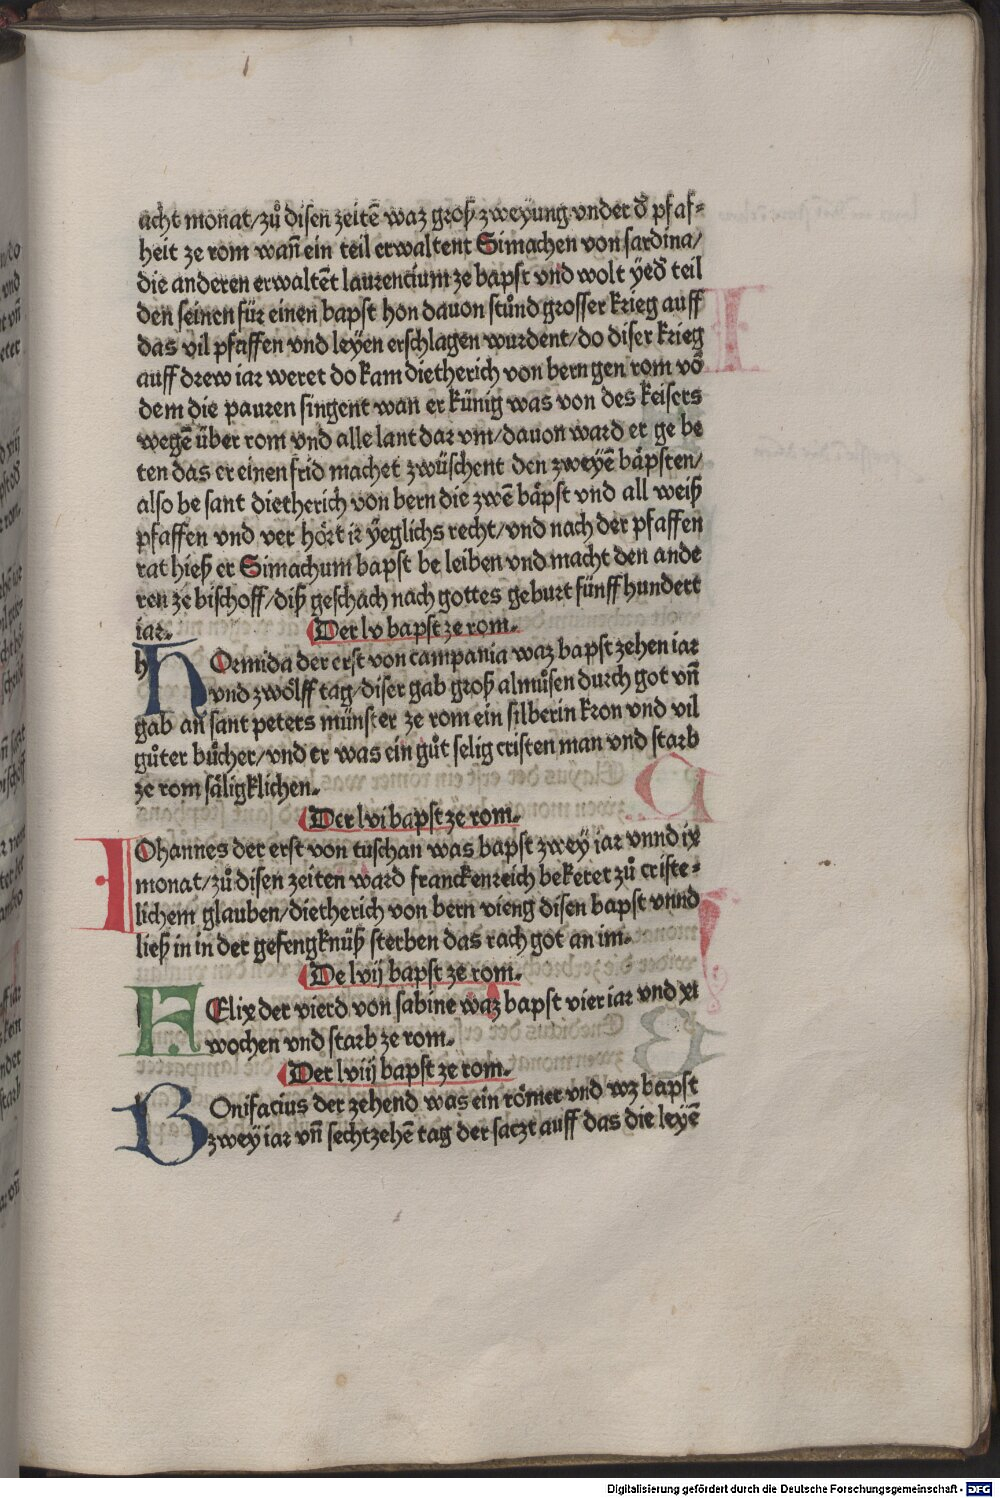 acht monat/zuͦ disen zeitē waz groß zweyung vnder d̄ pfaf⸗
heit ze rom wañ ein teil erwaltent Simachen von sardina/
die anderen erwaltēt laurencium ze bapst vnd wolt yed̄ teil
den seinen für einen bapst hon dauon stuͦnd grosser krieg auff
das vil pfaffen vnd leyen erschlagen wurdent/do diser krieg
auff drew iar weret do kam dietherich von bern gen rom vō
dem die pauren singent wan er künig was von des keisers
wegē über rom vnd alle lant dar vm/dauon ward er ge be
ten das er einen frid machet zwüschent den zweyē bäpsten/
also be sant dietherich von bern die zwē bäpst vnd all weiß
pfaffen vnd ver hört ir yeglichs recht/vnd nach der pfaffen
rat hieß er Simachum bapst be leiben vnd macht den ande
ren ze bischoff/diß geschach nach gottes geburt fünff hundert
iar.
Der lv bapst ze rom.
h HOrmida der erst von campania waz bapst zehen iar
vnd zwölff tag/diser gab groß almuͦsen durch got vñ
gab an sant peters münster ze rom ein silberin kron vnd vil
guͦter buͤcher/vnd er was ein guͦt selig cristen man vnd starb
ze rom säligklichen.
Der lvi bapst ze rom.
IOhannes der erst von tuschan was bapst zwey iar vnnd ix
monat/zuͦ disen zeiten ward franckenreich bekeret zuͦ criste⸗
lichem glauben/dietherich von bern vieng disen bapst vnnd
ließ in in der gefengknüß sterben das rach got an im.
De lvij bapst ze rom.
FElix der vierd von sabine waz bapst vier iar vnd xi
wochen vnd starb ze rom.
Der lviij bapst ze rom.
BOnifacius der zehend was ein römer vnd wz bapst
zwey iar vñ sechtzehē tag der saczt auff das die leyē
Digitalisierung gefördert durch die Deutsche Forschungsgemeinschaft - DFG